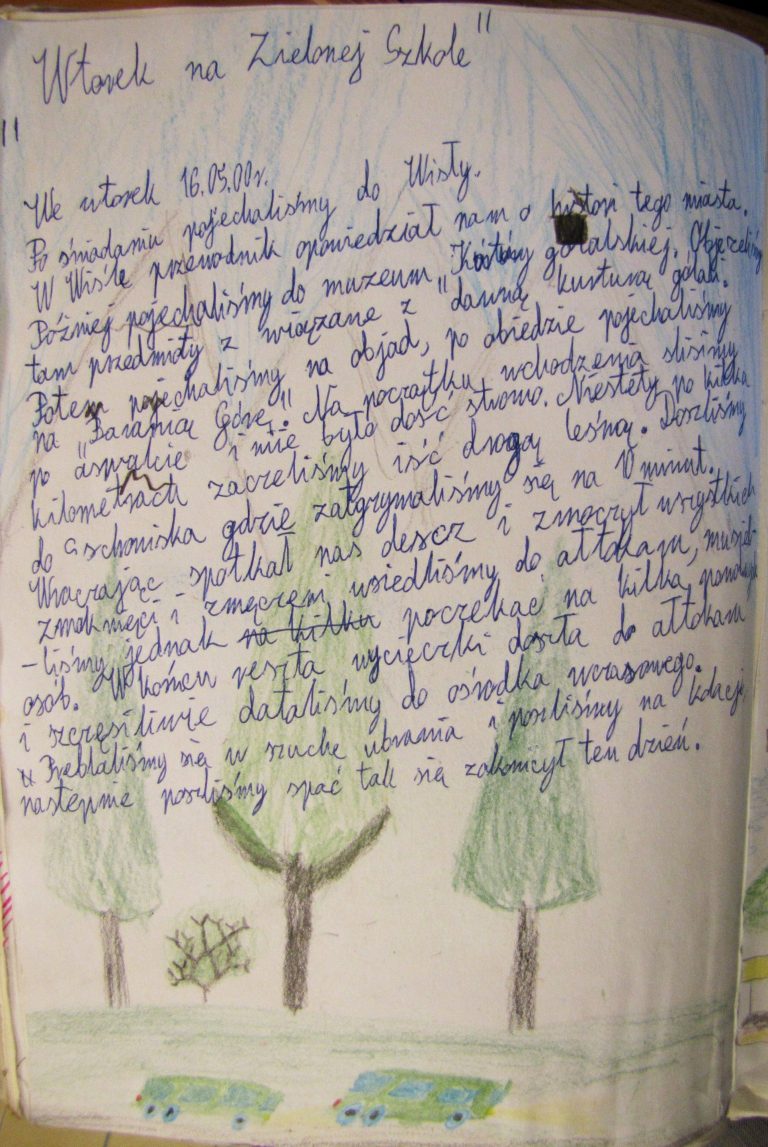 "Wtorek na Zielonej Szkole"
We wtorek 16.05.00r.
Po śniadaniu pojechaliśmy do Wisły.
W Wiśle przewodnik opowiedział nam o histori tego miasta.
Później pojechaliśmy do muzeum góralskiej. Objrzeliśmy
tam przedmioty z wiązane z "dawną kurturą górali.
Potem pojechaliśmy na objad, po obiedzie pojechaliśmy
na "Baranią Górę." Na początku wchodzenia sliśimy
po aswalcie i nie było dość stromo. Niestety po kilka
kilometrach zaczeliśmy iść drogą leśną. Doszliśmy
do schoniska gdzie zatgrymaliśmy się na 10 minut.
Wracając spotkał nas deszcz i zmoczył wszystkich
zmoknięci i zmęczeni wsiedliśmy do ałtokaru, musie-
-liśmy jednak na kilku poczekać na kilka
osób. W końcu reszta wycieczki doszła do ałtokaru
i szczęśiliwie dataliśmy do ośrodka wczasowego.
Preblaliśmy się w suche ubrania i poszliśmy na kolacje
następnie poszliśmy spać tak się zakończył ten dzień.